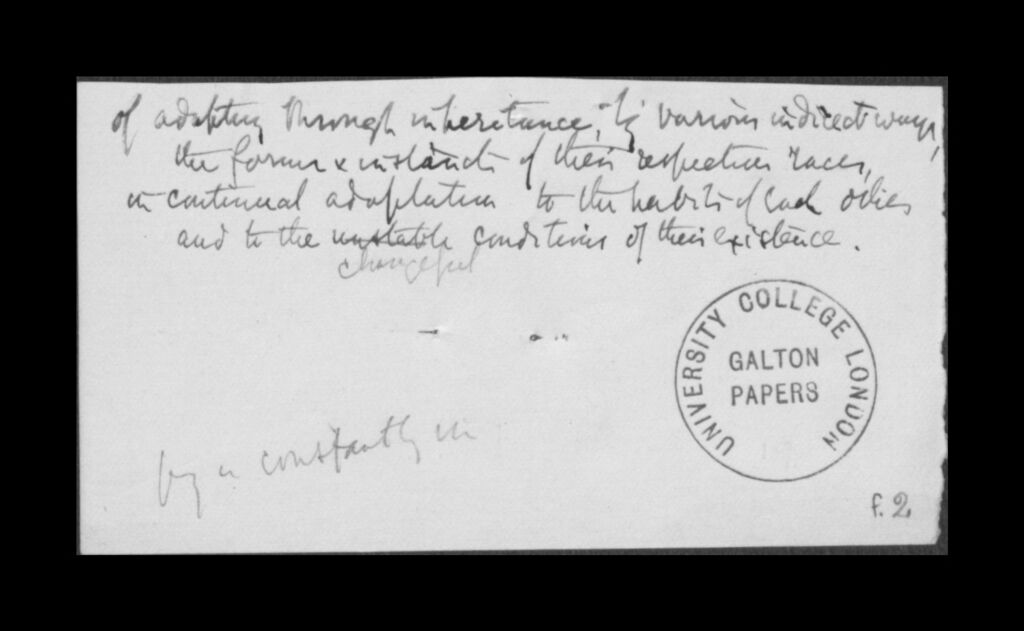 of adapting through inheritance, by various indirect ways,
the forms & instincts of their respective races,
in continual adaptation to the habits of each other
and to the unstable conditions of their existence.
changeful
UNIVERSITY COLLEGE LONDON
GALTON
PAPERS
by a constantly in
f. 2.